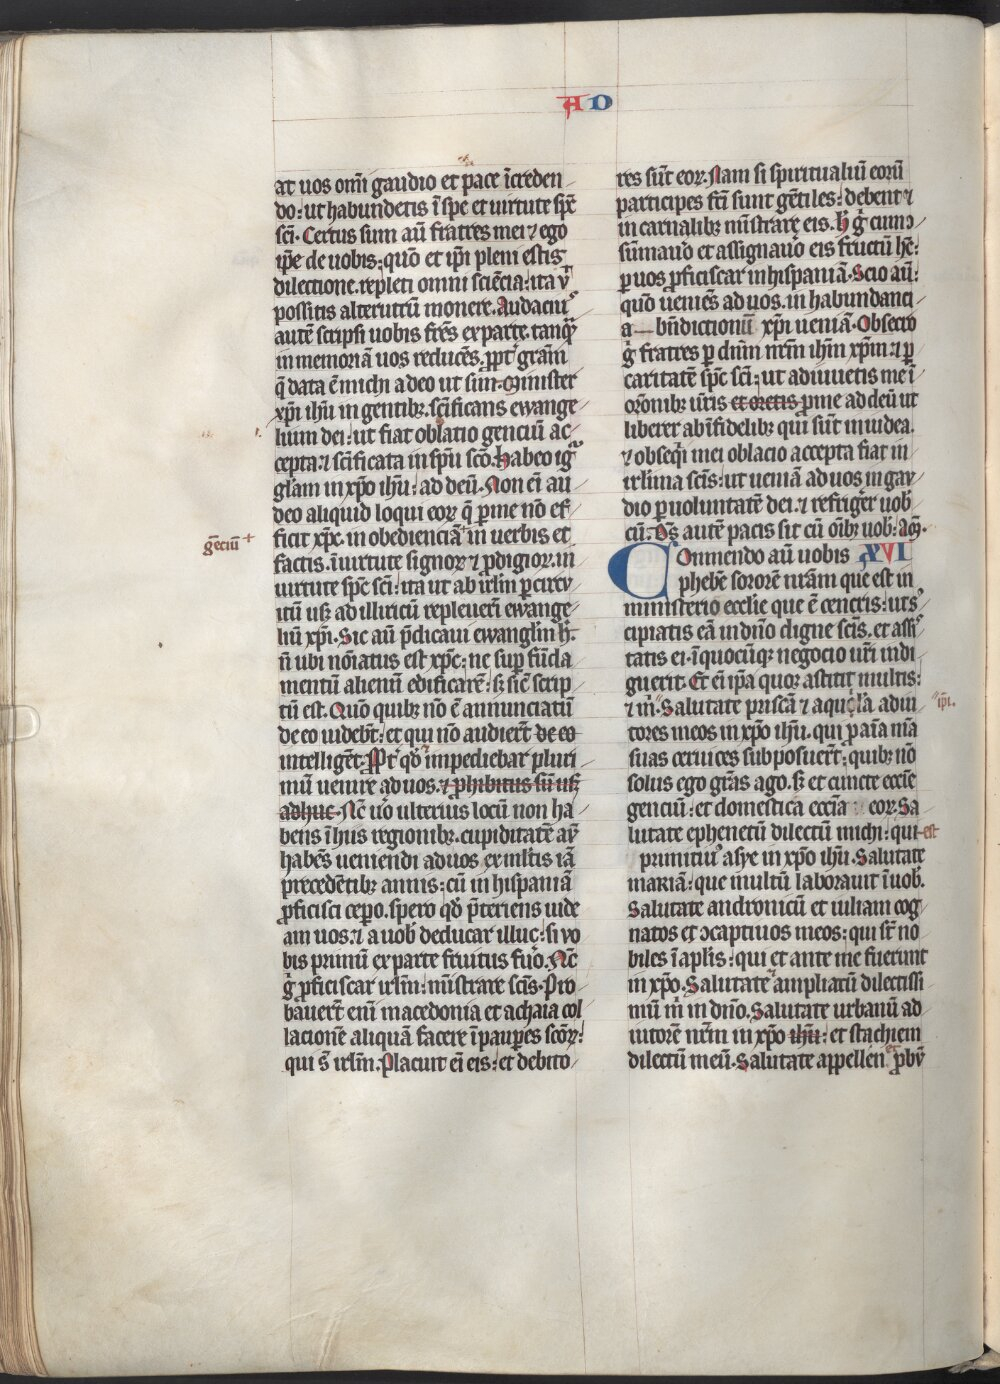 A D
at uos om̄i gaudio et pace īcreden
do: ut habundetis ī spe et uirtute sp̄c
sc̄i. Certus sum aū fratres mei ⁊ ego
ip̄e de uobis: quō et ip̄i pleni estis
dilectione. repleti omni sciēcia: ita ūͥ
possitis alterutrū monere. Audaciꝰ
autē scripsi uobis fr̄es ex parte. tanqͣ
in memoriā uos reducēs. ꝓpt̓ gr̄am
q̄ data ē michi a deo ut sim. Minister
xp̄i ih̄u in gentibꝫ. sc̄ificans ewange
lium dei: ut fiat oblatio genciū ac
cepta: ⁊ sc̄ificata in sp̄u sc̄o. Habeo igͣ
gl̄am in xp̄o ih̄u: ad deū. Non eī au
deo aliquid loqui eoꝝ q̄ ꝑ me nō ef
ficit xp̄c. in obedienciā + in uerbis et
gēciū +
factis. ī uirtute signoꝝ ⁊ ꝓdigioꝝ. in
uirtute sp̄c sc̄i: ita ut ab irl̄m ꝑ circu
itū usꝫ ad illiricū repleuerī ewange
liū xp̄i. Sic aū p̄dicaui ewangl̄im h̄.
n̄ ubi nōiatus est xp̄c: ne suꝑ fūda
mentū alienū edificarē: sꝫ sic̄ scrip
tū est. Quō quibꝫ nō ē annunciatū
de eo uidebt̄: et qui nō audier̄t de eo
intelligēt. Ꝓpt̓ qd̄ impediebar pluri
mū uenire ad uos. ⁊ ꝓhibitus sū usꝫ
adhuc. Nc̄ u̓o ulterius locū non ha
bens ī hiis regionibꝫ. cupiditatē aū
habēs ueniendi ad uos ex ml̄tis iā
precedētibꝫ annis: cū in hispaniā
ꝓficisci cepo. spero qd̄ p̄teriens uide
am uos: ⁊ a uob̄ deducar illuc: si vo
bis primū ex parte fruitus fu̓o. Nc̄
g̊ ꝓficiscar irl̄m: mīstrare sc̄is. Pro
bauer̄t enī macedonia et achaia col
lacionē aliquā facere ī pauꝑes sc̄oꝝ:
qui s̄ irl̄m. Placuit eī eis: et debito
res sūt eoꝝ. Nam si spiritualiū eorū
participes fc̄i sunt gētiles: debent ⁊
in carnalibꝫ mīstrare eis. h̄ g̊ cum ɔ
sūmauō et assignauo eis fructū hc̄:
ꝑ uos ꝓficiscar in hispaniā. Scio aū:
quō ueniēs ad uos. in habundanci
a bn̄dictionū xp̄i ueniā. Obsecro
g̊ fratres ꝑ dn̄m nr̄m ih̄m xp̄m: ⁊ ꝑ
caritatē sp̄c sc̄i: ut adiuuetis me ī
orōnibꝫ ur̄is et oretis ꝓ me ad deū ut
liberer ab īfidelibꝫ qui sūt in iudea.
⁊ obseq̄i mei oblacio accepta fiat in
irl̄ima sc̄is: ut ueniā ad uos in gau
dio ꝑ uoluntatē dei. ⁊ refriger̄ uob̄
cū. Ds̄ autē pacis sit cū oīb; uob̄: am̄.
Commendo aū uobis XVI
phebē sororē nr̄am que est in
ministerio eccl̄ie que ē cencris: ut sꝰ
cipiatis eā in dn̄o digne sc̄is. et assiꝰ
tatis ei. ī quocūqꝫ negocio ur̄i indi
guerit. Et eī ip̄a quoꝫ astitit multis:
⁊ m̄ ip̄i. Salutate priscā ⁊ aquilā adiu
tores meos in xp̄o ih̄u. qui ꝓ aīa mīa
suas ceruices subposuer̄t: quibꝫ nō
solus ego gr̄as ago. sꝫ et cuncte ecc̄ie
genciū: et domestica ecc̄ia eoꝝ. Sa
lutate ephenetū dilectū michi: qui est
primitiuꝰ asye in xp̄o ih̄u. Salutate
mariā: que multū laborauit ī uob̄.
Salutate andronicū et iuliam cog
natos et ɔcaptiuos meos: qui st̄ no
biles ī apl̄is: qui et ante me fuerunt
in xp̄o. Salutate ampliatū dilectissi
mū m̄ in dn̄o. Salutate urbanū ad
iutorē nr̄m in xp̄o ih̄u: et stachiem
dilectū meū. Salutate appellen ꝓbū